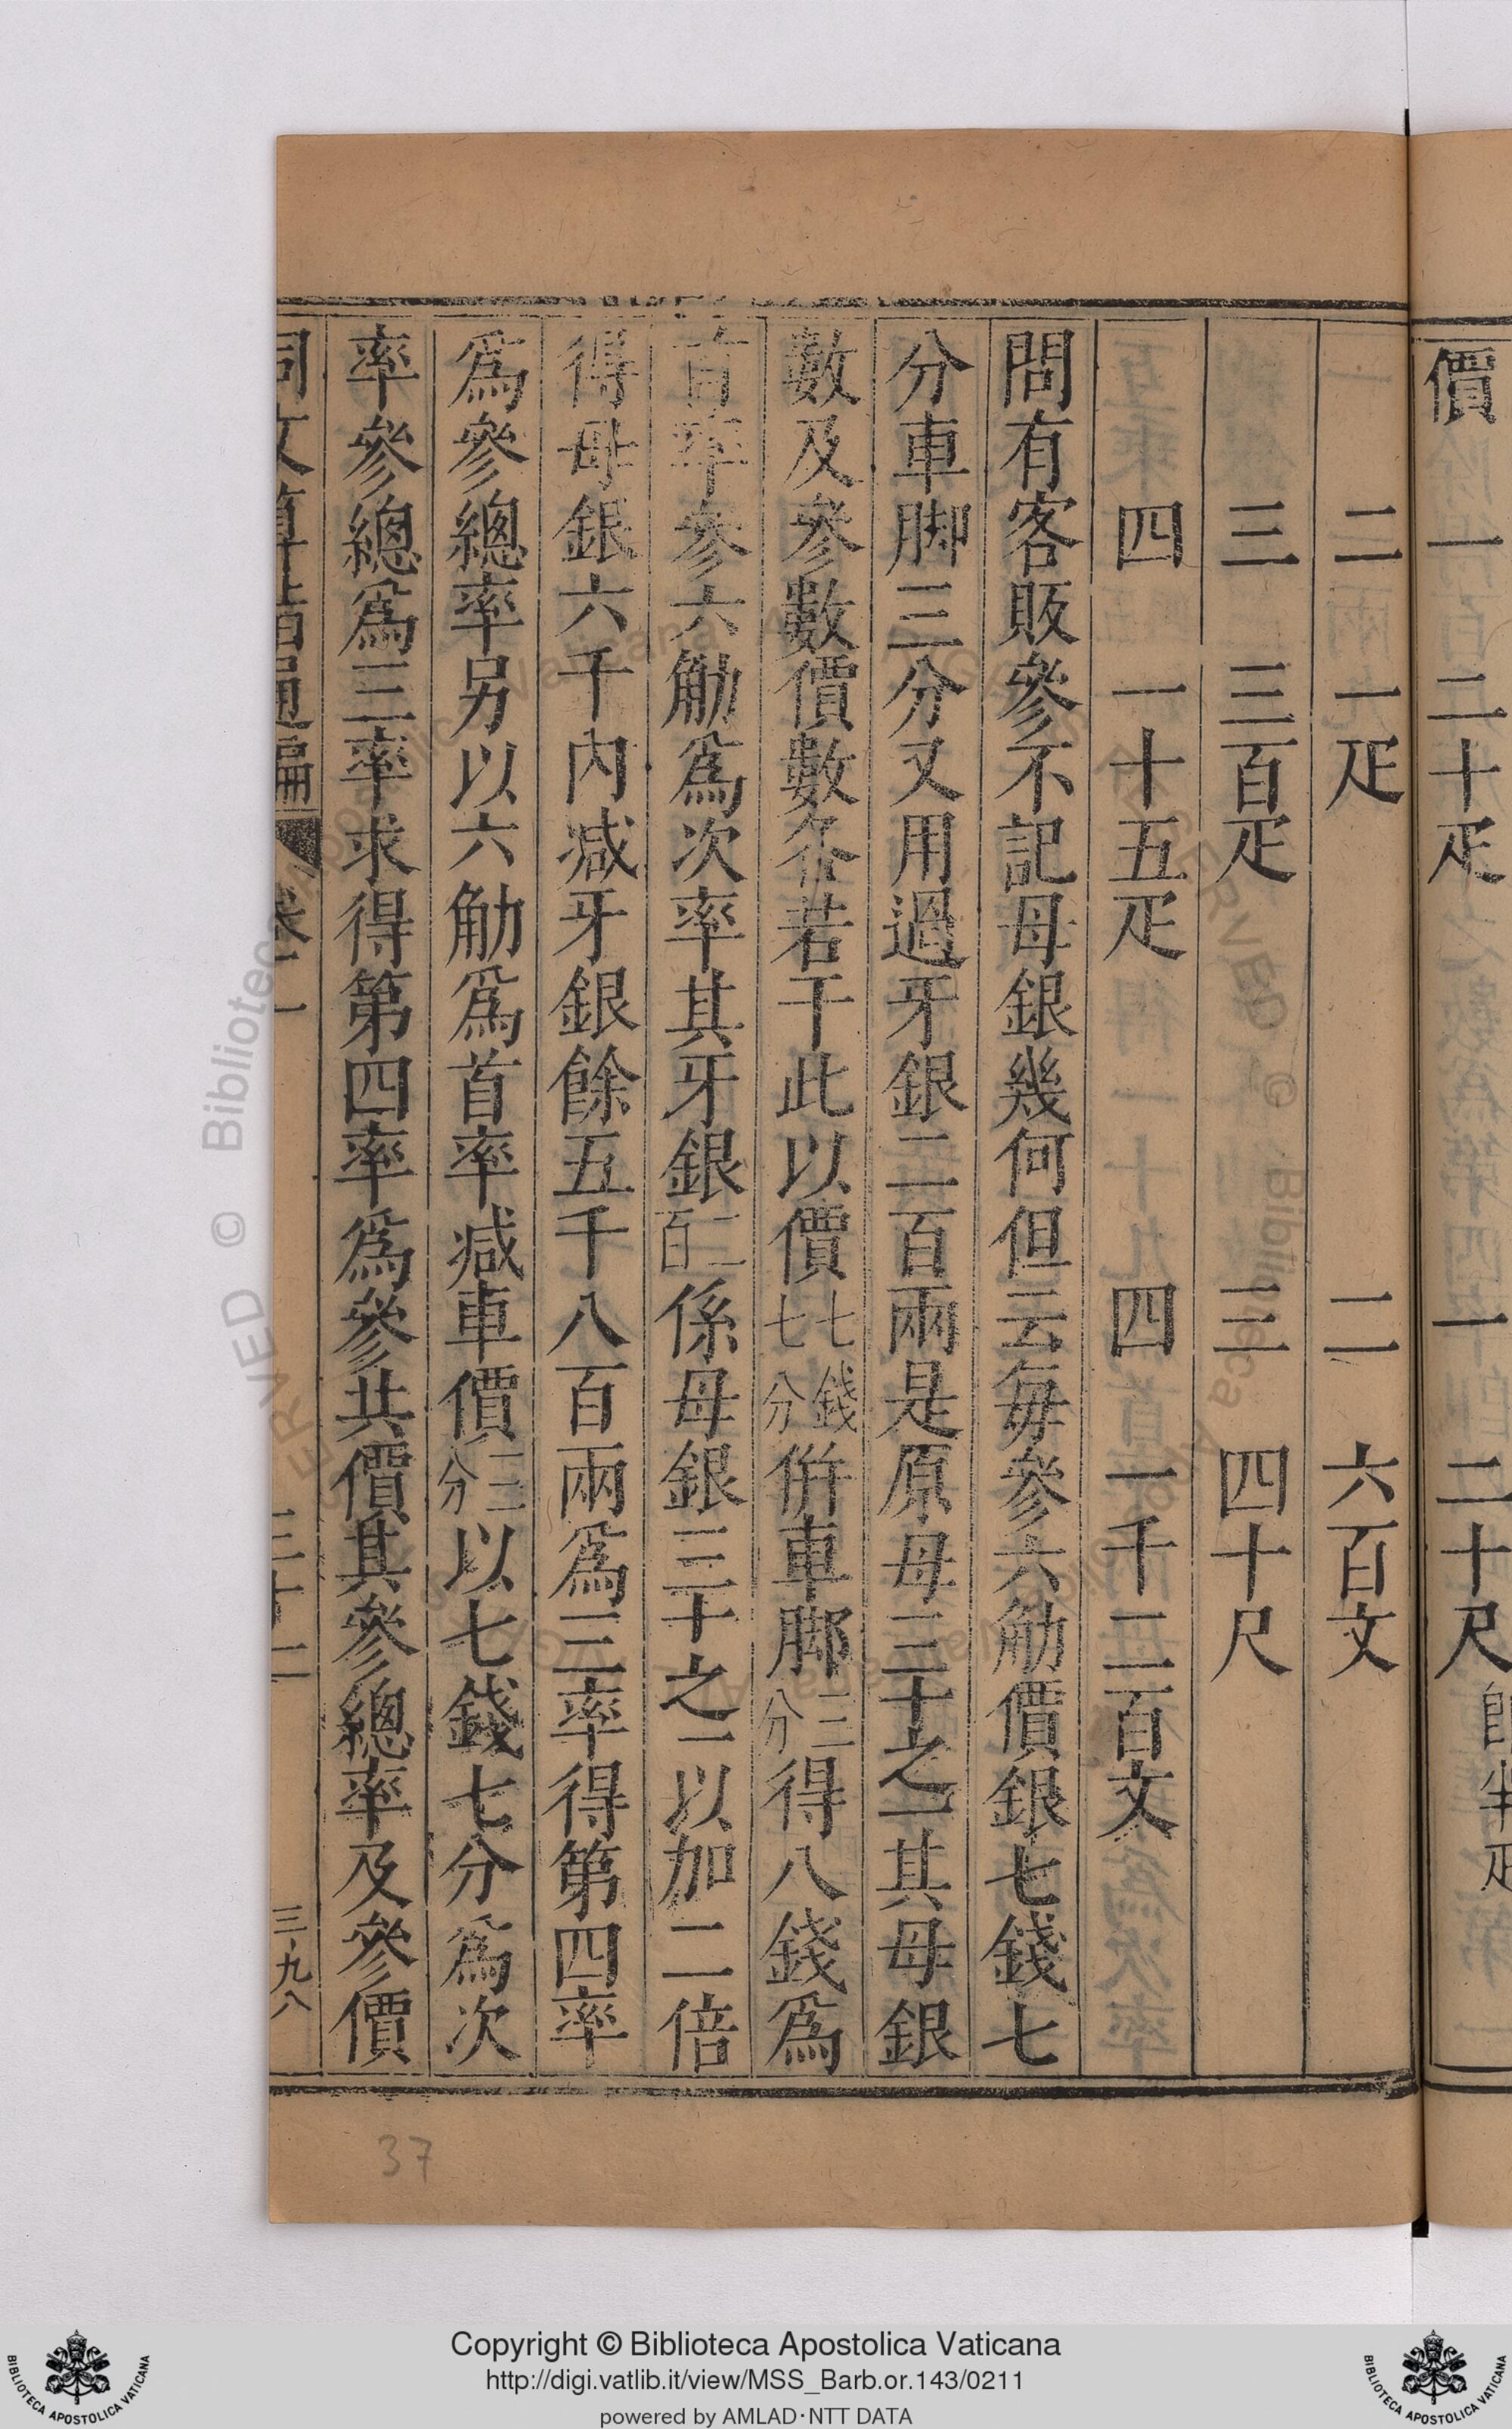 價 一 二十疋 一 二十尺
二 一疋 二 六百文
三 三百疋 三 四十尺
四 一十五疋 四 一千二百文
問有客販參不記母銀幾何但云每參六觔價銀七錢七
分車脚三分又用過牙銀二百兩是原母三十之一其母銀
數及參數價數各若干此以價七錢七分併車脚三分得八錢爲
首率參六觔爲次率其牙銀二百係母銀三十之一以加二倍
得母銀六千內减牙銀餘五千八百兩爲三率得第四率
爲參總率另以六觔爲首率减車價三分以七錢七分爲次
率參總爲三率求得第四率爲參共價其參總率及參價
同文算指通編 卷二 三十二 三九八
37
Copyright © Biblioteca Apostolica Vaticana
http://digi.vatlib.it/view/MSS_Barb.or.143/0211
powered by AMLAD·NTT DATA
BIBLIOTECA APOSTOLICA VATICANA
BIBLIOTECA APOSTOLICA VATICANA